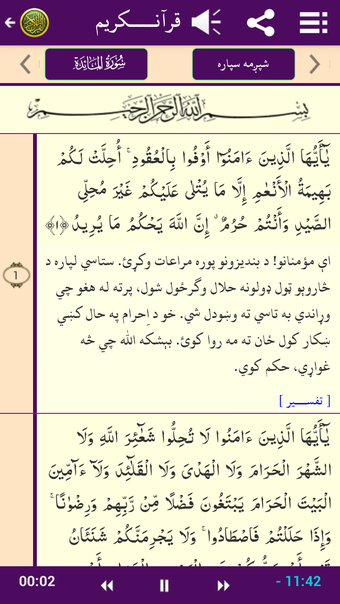 قرآنـــکـــریم
شپږمه سپاره
سُوْرَةُ الْمَائِدَة
بِسْمِ اللّٰهِ الرَّحْمٰنِ الرَّحِيْمِ
يَٰٓأَيُّهَا الَّذِينَ ءَامَنُوٓا۟ أَوْفُوا بِالْعُقُودِ ۚ أُحِلَّتْ لَكُمْ
بَهِيمَةُ الْأَنْعَٰمِ إِلَّا مَا يُتْلَىٰ عَلَيْكُمْ غَيْرَ مُحِلِّى
الصَّيْدِ وَأَنْتُمْ حُرُمٌ ۗ إِنَّ اللَّهَ يَحْكُمُ مَا يُرِيدُ ﴿١﴾
1
اې مؤمنانو! د بنديزونو پوره مراعات وکړئ. ستاسې لپاره د
څاروېو ټول ډولونه حلال وګرځول شول، پرته له هغو چې
وړاندې به تاسې ته وښودل شي. خو د اِحرام په حال کښې
ښکار کول ځان ته مه روا کوئ. بېشکه الله چې څه
غواړي، حکم کوي.
[ تفســـير ]
يَٰٓأَيُّهَا الَّذِينَ ءَامَنُوا لَا تُحِلُّوا شَعَٰٓئِرَ اللَّهِ وَلَا
الشَّهْرَ الْحَرَامَ وَلَا الْهَدْىَ وَلَا الْقَلَٰٓئِدَ وَلَآ ءَآمِّينَ
الْبَيْتَ الْحَرَامَ يَبْتَغُونَ فَضْلًا مِّنْ رَّبِّهِمْ وَرِضْوَٰنًا ۚ
وَإِذَا حَلَلْتُمْ فَاصْطَادُوا ۚ وَلَا يَجْرِمَنَّكُمْ شَنَـَٔانُ
00:02
- 11:42